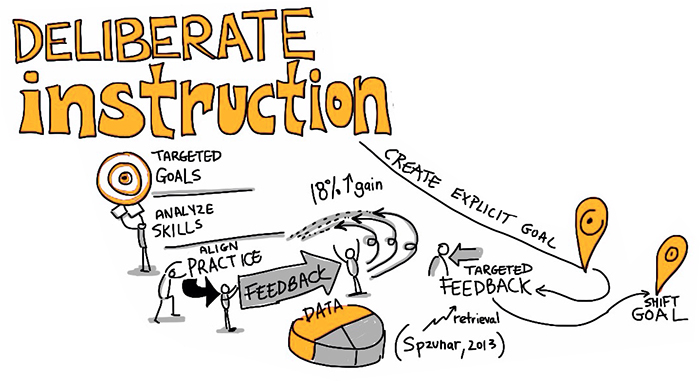 DELIBERATE
instruction
TARGETED
GOALS
ANALYZE
SKILLS
ALIGN
PRACTICE
FEEDBACK
18% ↑ gain
DATA
CREATE EXPLICIT GOAL
TARGETED
FEEDBACK
retrieval
(Spzunar, 2013)
SHIFT
GOAL